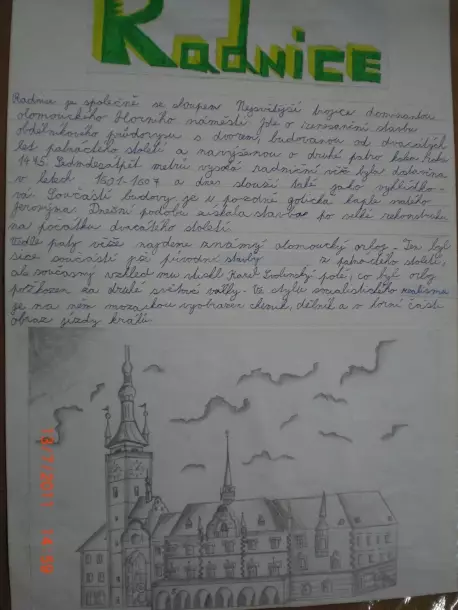 Radnice
Radnice je společně se sloupem Nejsvětější trojice dominantou
olomouckého Horního náměstí. Jde o renesanční stavbu
obdélníkového půdorysu s dvorem, budovanou od dvacátých
let patnáctého století a navýšenou o druhé patro kolem roku
1475. Sedmdesátpět metrů vysoká radniční věž byla dostavěna
v letech 1601-1607 a dnes slouží také jako vyhlídko-
vá. Součástí budovy je i pozdně gotická kaple svatého
Jeroným. Dnešní podobu získala stavba po velké rekonstrukci
na počátku dvacátého století.
Vedle paty věže najdeme známý olomoucký orloj. Ten byl
sice součástí již původní stavby z patnáctého století,
ale současný vzhled mu vtiskl Karel Svolinský poté, co byl orloj
poškozen za druhé světové války. Ve stylu socialistického realismu
je na něm mozaikou vyobrazen chemik, dělník a v horní části
obraz jízdy králů.